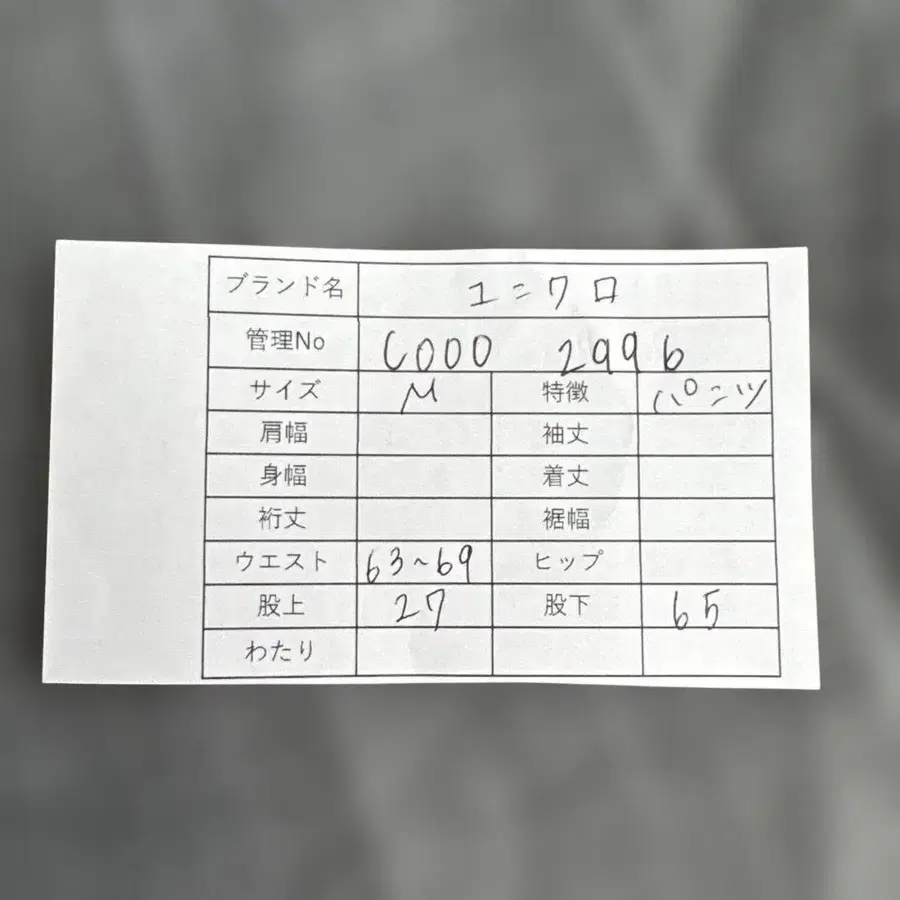 ブランド名 ユニクロ
管理No C000 2996
サイズ M 特徴 パンツ
肩幅 袖丈
身幅 着丈
裄丈 裾幅
ウエスト 63~69 ヒップ
股上 27 股下 65
わたり